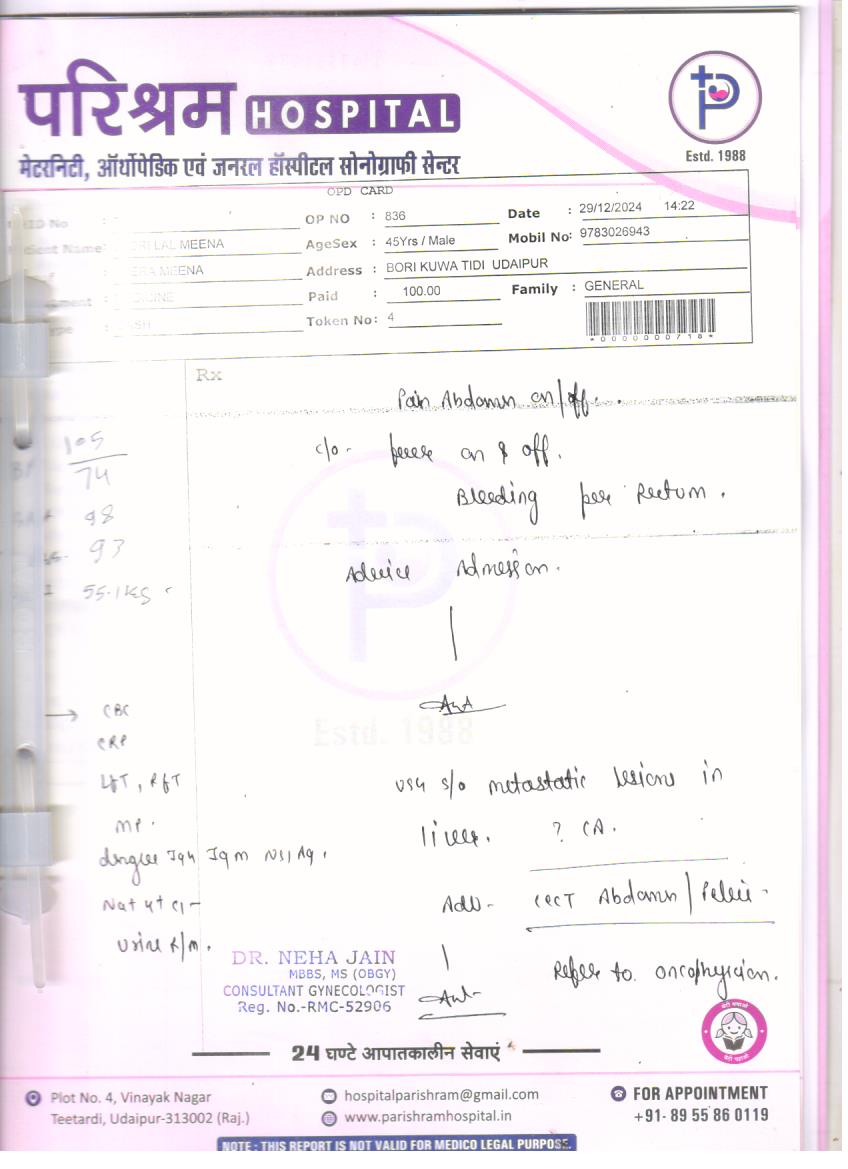 परिश्रम HOSPITAL
मेटरनिटी, ऑर्थोपेडिक एवं जनरल हॉस्पीटल सोनोग्राफी सेन्टर
Estd. 1988
OPD CARD
No :
OP NO : 836
Date : 29/12/2024 14:22
Name : LAL MEENA
AgeSex : 45Yrs / Male
Mobil No: 9783026943
: MEENA
Address : BORI KUWA TIDI UDAIPUR
Paid : 100.00
Family : GENERAL
Token No: 4
*0000000718*
Rx
Pain Abdomen on/off.
c/o - fever on & off.
Bleeding per Rectum.
105
74
98
93
55.1 kg
Advice Admission.
Estd. 1988
→ CBC
CRP
LFT, RFT
MP.
dengue IgG IgM NS1 Ag.
Na+ K+ Cl-
Urine R/M.
USG s/o metastatic lesions in
liver. ? CA.
Adv - CECT Abdomen / Pelvic -
Refer to oncophysician.
DR. NEHA JAIN
MBBS, MS (OBGY)
CONSULTANT GYNECOLOGIST
Reg. No.-RMC-52906
24 घण्टे आपातकालीन सेवाएं
Plot No. 4, Vinayak Nagar
Teetardi, Udaipur-313002 (Raj.)
hospitalparishram@gmail.com
www.parishramhospital.in
FOR APPOINTMENT
+91- 89 55 86 0119
NOTE : THIS REPORT IS NOT VALID FOR MEDICO LEGAL PURPOSE.